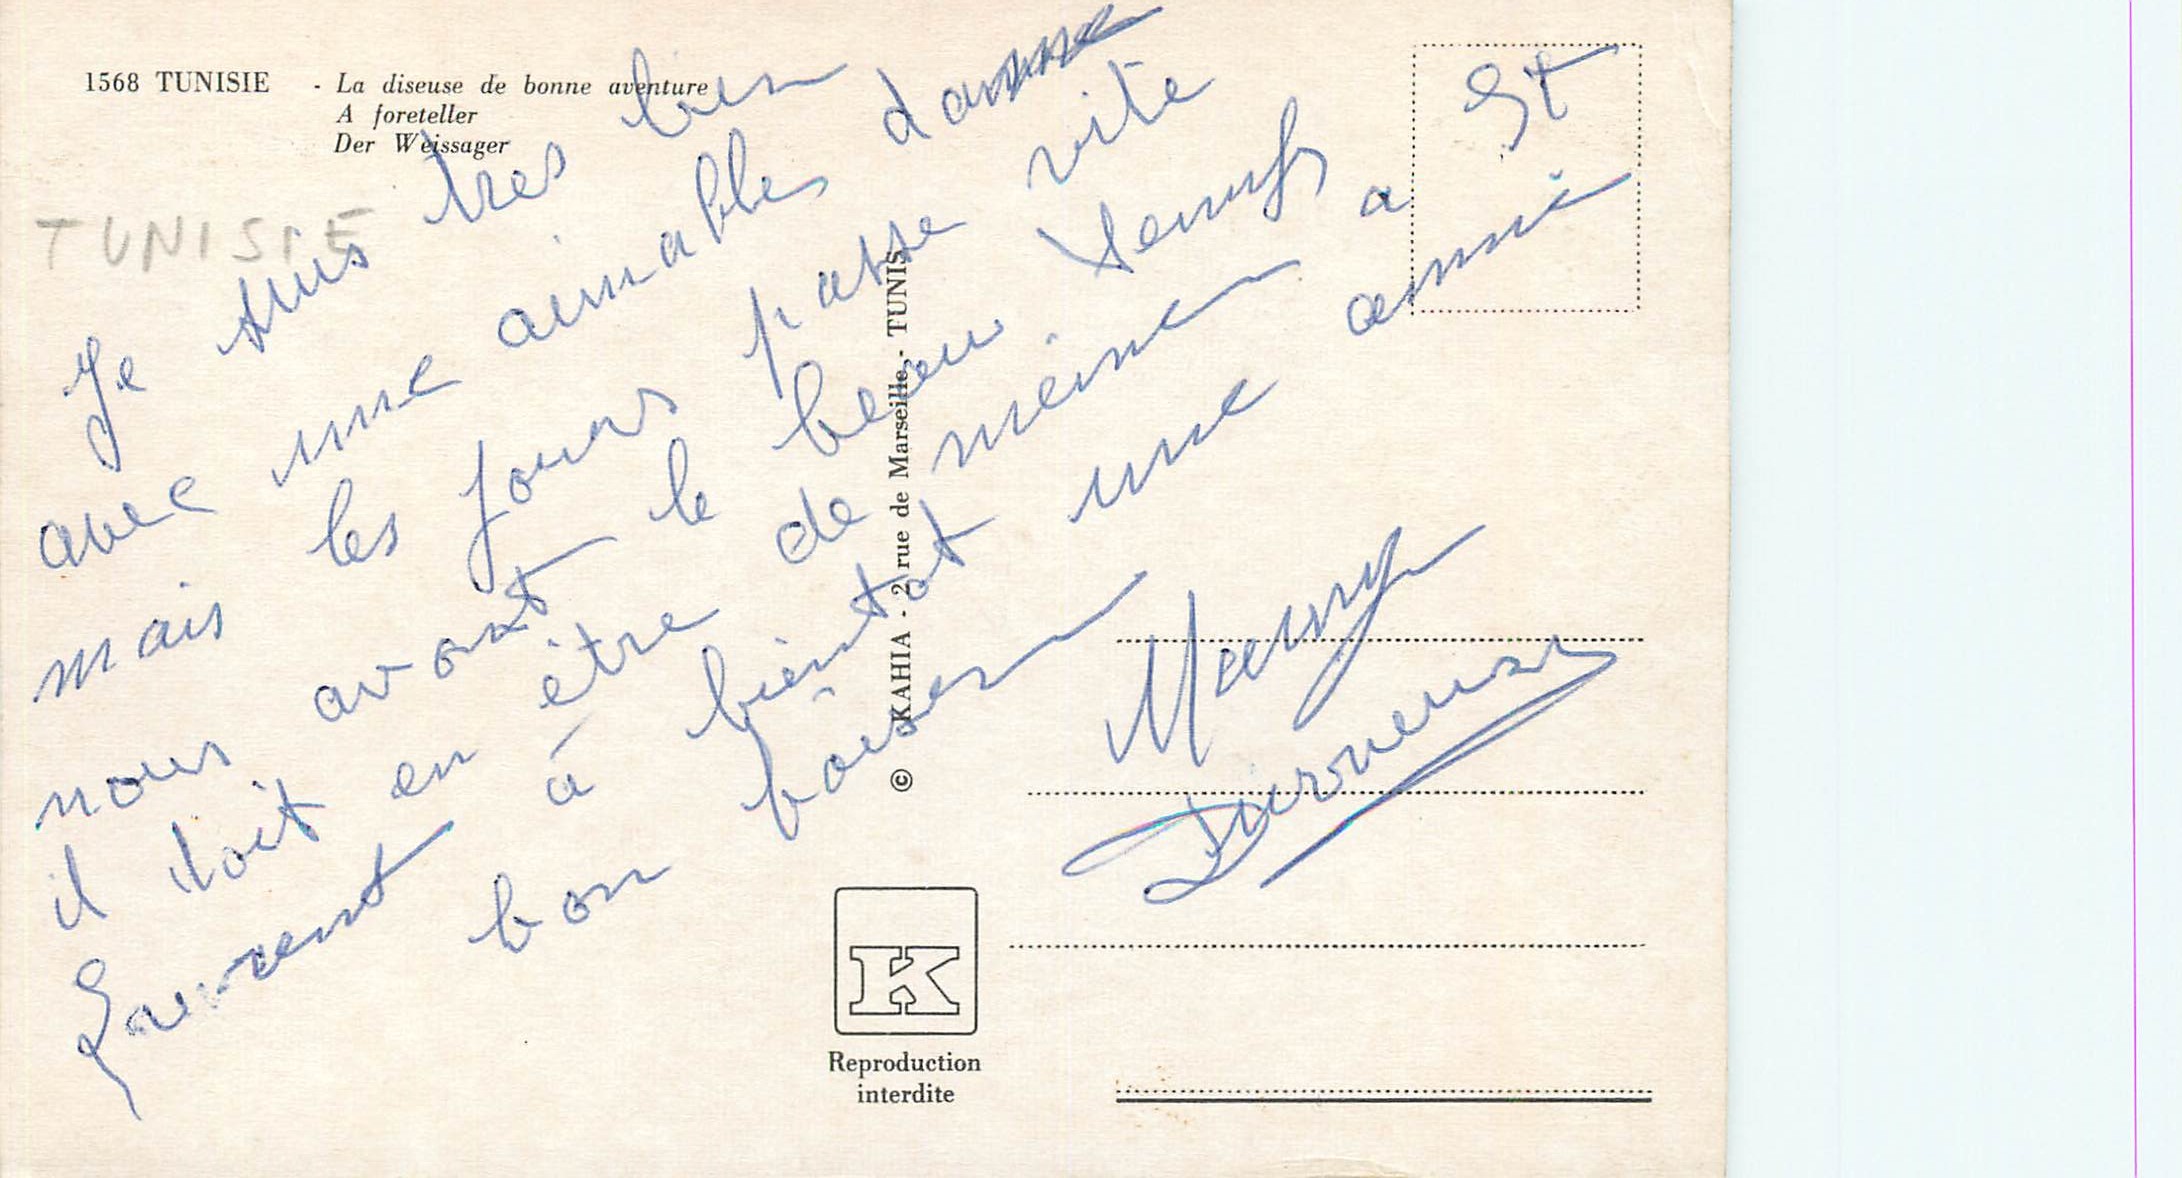 1568 TUNISIE - La diseuse de bonne aventure
A foreteller
Der Weissager
TUNISIE
Je suis tres bien
avec une aimables damme
mais les jours passe vite
nous avont le beau temps
il doit en être de meme a St
Laurent à bientot une amnie
bon baiser
© KAHIA - 2 rue de Marseille - TUNIS
K
Reproduction
interdite